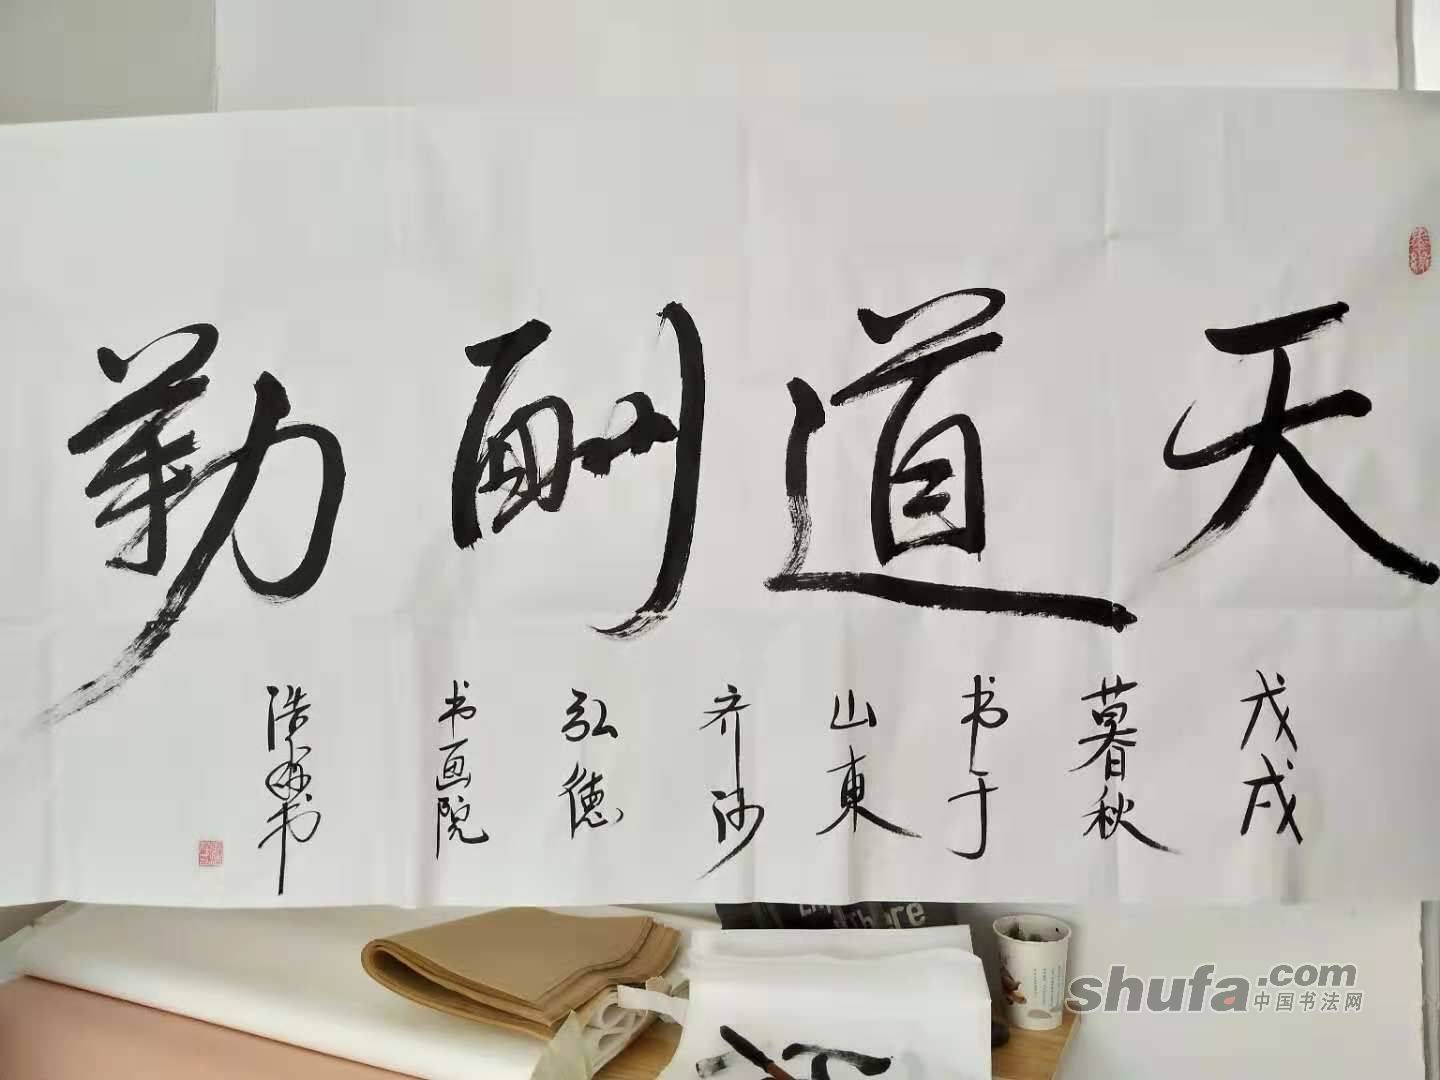 天道酬勤
戊戌
暮秋
书于
山東
齐河
弘德
书画院
浩
书
shufa.com
中国书法网